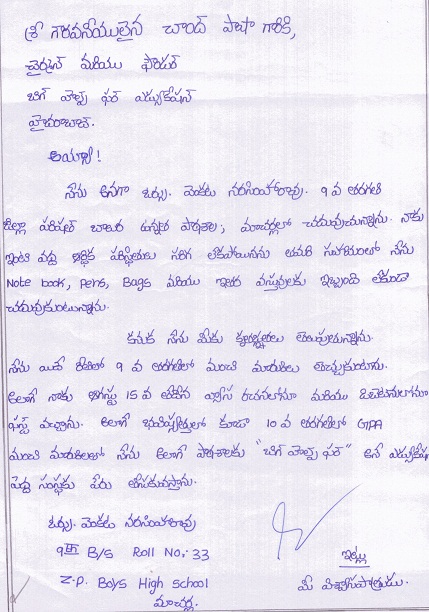 శ్రీ గౌరవనీయులైన చాంద్ పాషా గారికి,
చైర్మైన్ మరియు ఫౌండర్
బిగ్ హెల్ప్ ఫర్ ఎడ్యుకేషన్
హైదరాబాద్.
అయ్యా!
నేను అనగా ఓర్సు. వెంకట నరసింహారావు. 9 వ తరగతి
జిల్లా పరిషత్ బాలుర ఉన్నత పాఠశాల, మాచర్లలో చదువుచున్నాను. నాకు
ఇంటి వద్ద ఆర్థిక పరిస్థితులు సరిగ లేకపోయినను తమరి సహాయంలో నేను
Note book, pens, Bags మరియు ఇతర వస్తువులకు ఇబ్బంది లేకుండా
చదువుకుంటున్నాను.
కనుక నేను మీకు కృతజ్ఞతలు తెలుపుచున్నాను.
నేను ఇదే రీతిలో 9 వ తరగతిలో మంచి మార్కులు తెచ్చుకుంటాను.
అలాగే నాకు ఆగస్టు 15 వ తేదిన వ్యాస రచనలోనూ మరియు
ఫస్ట్ వచ్చాను. అలాగే భవిష్యత్తులో కూడా 10 వ తరగతిలో GPA
మంచి మార్కులతో నేను అలాగే పాఠశాలకు "బిగ్ హెల్ప్ ఫర్" అనే ఎడ్యుకేషన్
పెద్ద సంస్థకు పేరు తీసుకువస్తాను.
ఓర్సు. వెంకట నరసింహారావు
9th B/s Roll No,: 33
ఇట్లు
Z.P. Boys High school
మీ విశ్వాసపాత్రుడు.
మాచర్ల.